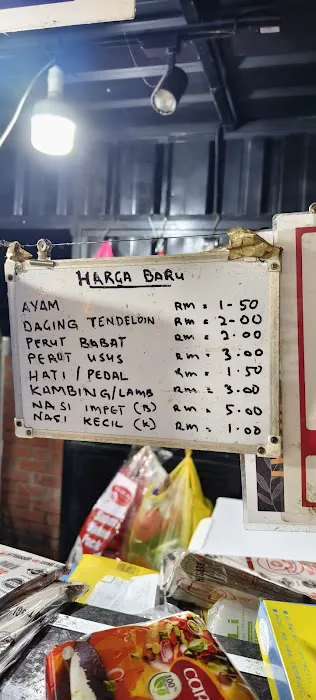 HARGA BARU
AYAM RM = 1-50
DAGING TENDELOIN RM = 2-00
PERUT BABAT RM = 2.00
PERUT USUS RM = 3.00
HATI / PEDAL RM = 1.50
KAMBING/LAMB RM = 3.00
NASI IMPET (B) RM = 5.00
NASI KECIL (K) RM = 1.00